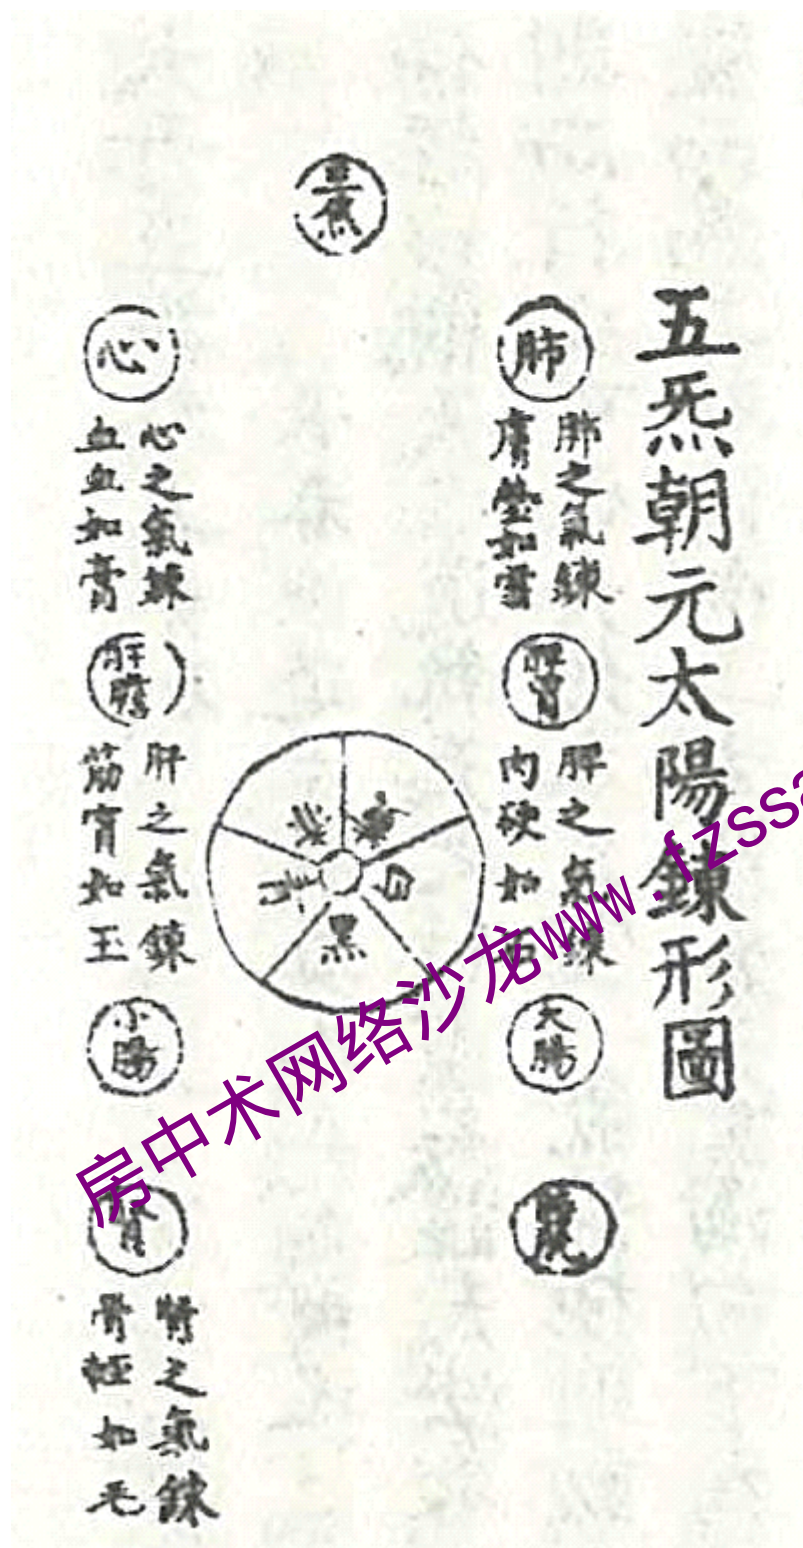 五炁朝元太陽鍊形圖
肺
肺之氣鍊
膚瑩如雪
脾胃
脾之氣鍊
肉硬如
大腸
三焦
黃
白
黑
青
赤
心
心之氣鍊
血血如膏
肝膽
肝之氣鍊
筋實如玉
小腸
腎
腎之氣鍊
骨輕如毛
房中术网络沙龙www.fzssa